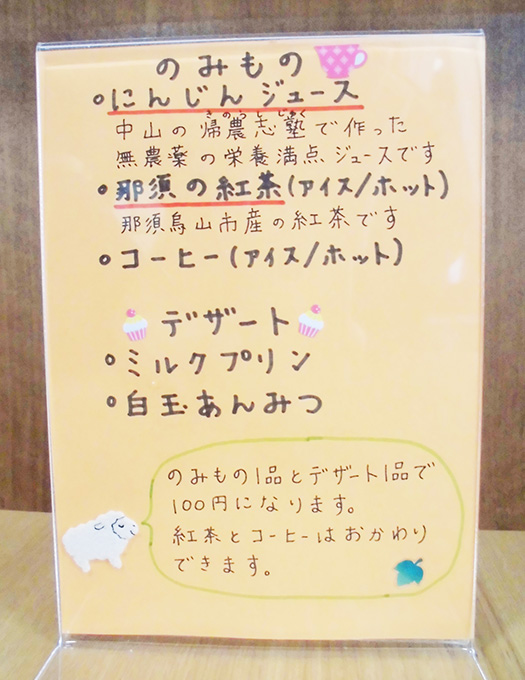 のみもの
にんじんジュース
中山の帰農志塾で作った
無農薬の栄養満点ジュースです
那須の紅茶(アイス/ホット)
那須烏山市産の紅茶です
コーヒー(アイス/ホット)
デザート
ミルクプリン
白玉あんみつ
のみもの1品とデザート1品で
100円になります。
紅茶とコーヒーはおかわり
できます。